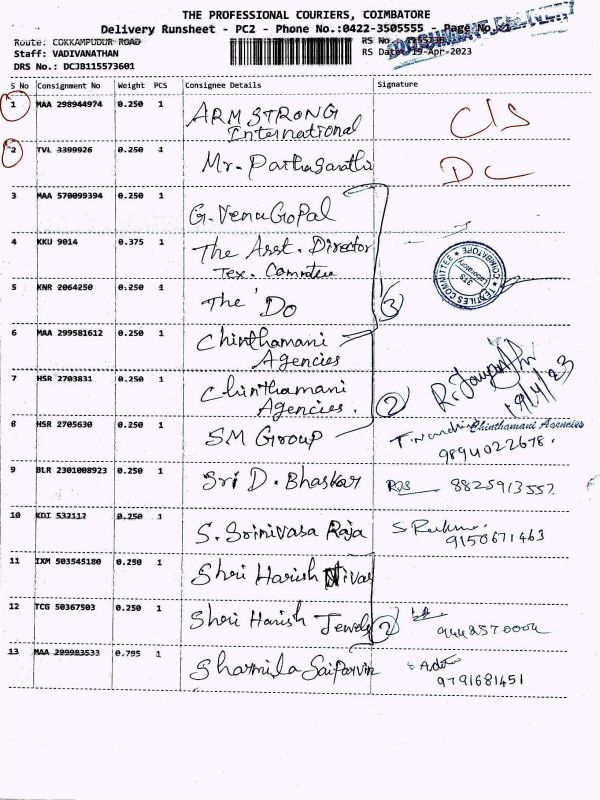 THE PROFESSIONAL COURIERS, COIMBATORE
Delivery Runsheet - PC2 - Phone No.:0422-3505555 - Page No.:1
Route: COKKAMPUDUR ROAD
RS No.:
Staff: VADIVANATHAN
RS Date: 19-Apr-2023
DRS No.: DCJB115573601
S No Consignment No Weight PCS Consignee Details Signature
1 MAA 298944974 0.250 1 ARMSTRONG
International
C/S
2 TVL 3399926 0.250 1 Mr. Parthasarathi DC
3 MAA 570099394 0.250 1 G. VenuGopal
4 KKU 9014 0.375 1 The Asst. Director
Tex. Committee
TEXTILES COMMITTEE ★ COIMBATORE ★
Laboratory
5 KNR 2064250 0.250 1 The 'Do 3
6 MAA 299581612 0.250 1 Chinthamani
Agencies
7 HSR 2703831 0.250 1 Chinthamani
Agencies. 2
19/4/23
Chinthamani Agencies
8 HSR 2705630 0.250 1 SM Group
9894022678.
9 BLR 2301008923 0.250 1 Sri D. Bhaskar 8825913557
10 KDI 532112 0.250 1 S. Srinivasa Raja
9150671463
11 IXM 503545180 0.250 1 Shri Harish Nivas
12 TCG 50367503 0.250 1 Shri Harish Jewels 2
13 MAA 299983533 0.795 1 Sharmila Saiparvin
9791681451